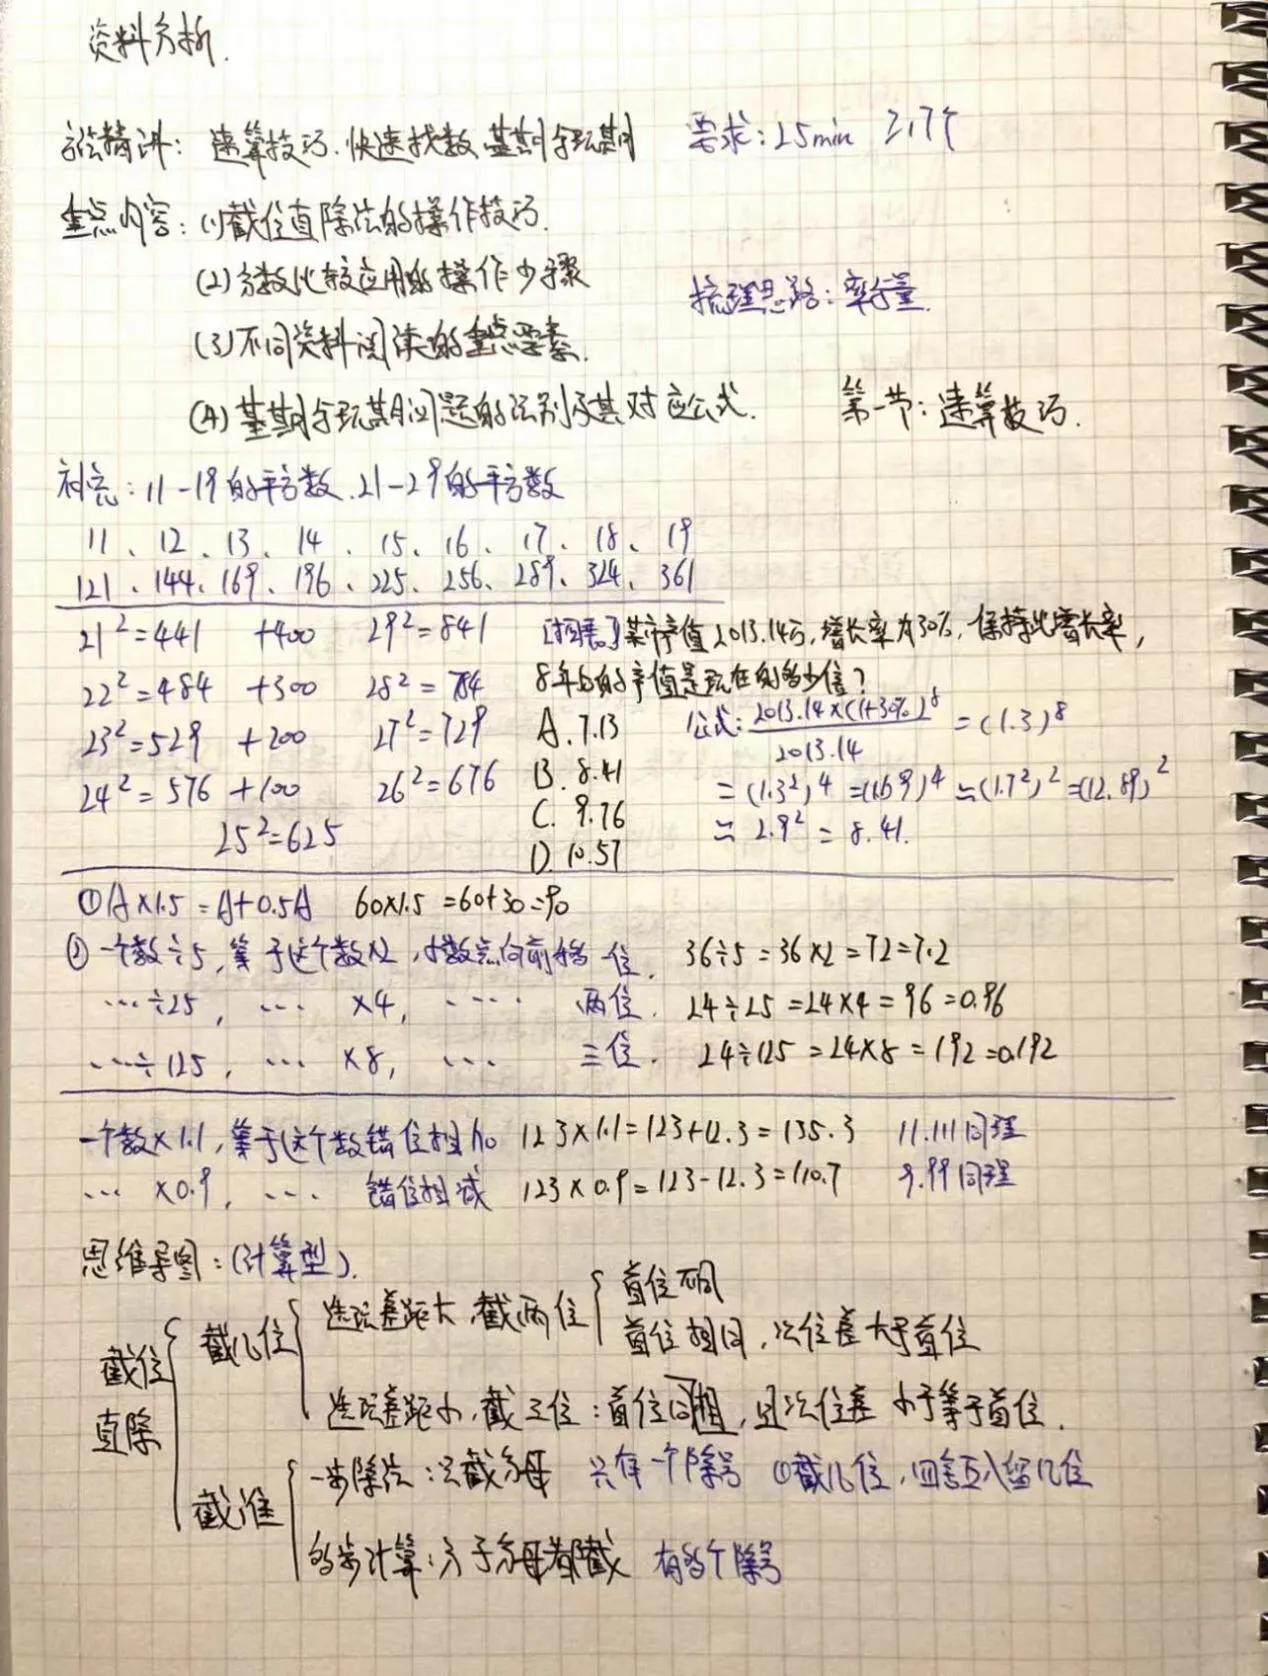 资料分析.
方法精讲: 速算技巧.快速找数.基期与现期 要求:25min 21个
重点内容: (1)截位直除法的操作技巧.
(2)分数比较应用的操作步骤
梳理思路: 率与量.
(3)不同资料阅读的重点要素.
(4)基期与现期问题的识别及其对应公式. 第一节:速算技巧.
补充: 11-19的平方数.21-29的平方数
11、12、13、14、15、16、17、18、19
121、144、169、196、225、256、289、324、361
21²=441 +400 29²=841 某市产值2013.14万,增长率为30%,保持此增长率,
22²=484 +300 28²=784 8年后的产值是现在的多少倍?
23²=529 +200 27²=729 A.7.13 公式: 2013.14×(1+30%)⁸/2013.14 =(1.3)⁸
24²=576 +100 26²=676 B. 8.41 =(1.3²)⁴=(1.69)⁴≈(1.7²)²=(2.89)²
25²=625 C. 9.76 ≈ 2.9² = 8.41.
D. 10.57
①A×1.5=A+0.5A 60×1.5=60+30=90
②一个数÷5,等于这个数×2,小数点向前移一位. 36÷5=36×2=72=7.2
…÷25, … ×4, …… 两位. 24÷25=24×4=96=0.96
…÷125, … ×8, … 三位. 24÷125=24×8=192=0.192
一个数×1.1,等于这个数错位相加 123×1.1=123+12.3=135.3 11.111同理
… ×0.9, … 错位相减 123×0.9=123-12.3=110.7 9.99同理
思维导图:(计算型).
截位直除
截几位
选项差距大,截两位
首位不同
首位相同,次位差大于首位
选项差距小,截三位:首位相同,且次位差小于等于首位.
截谁
一步除法:只截分母 只有一个除号 ①截几位,四舍五入留几位
多步计算:分子分母都截 有多个除号